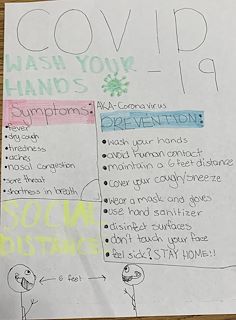 COVID
-19
WASH YOUR
HANDS
AKA-Coronavirus
Symptoms:
• fever
• dry cough
• tiredness
• aches
• nasal congestion
• sore throat
• shortness in breath
PREVENTION:
• wash your hands
• avoid human contact
• maintain a 6 feet distance
• Cover your cough/sneeze
• Wear a mask and gloves
• use hand sanitizer
• disinfect surfaces
• don't touch your face
• feel sick? STAY HOME!!
SOCIAL
DISTANCE
← 6 feet →